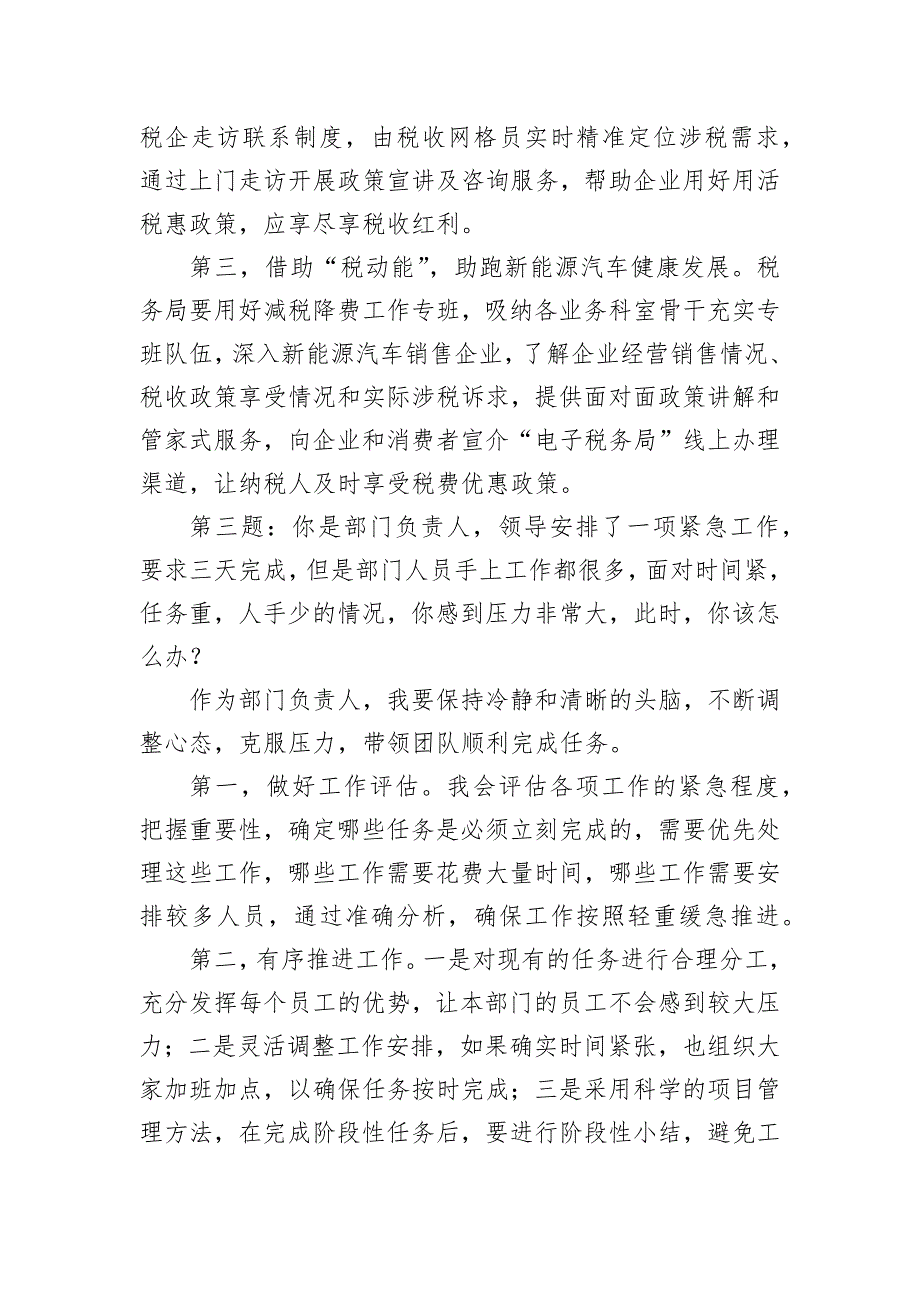 税企走访联系制度，由税收网格员实时精准定位涉税需求，
通过上门走访开展政策宣讲及咨询服务，帮助企业用好用活
税惠政策，应享尽享税收红利。
第三，借助“税动能”，助跑新能源汽车健康发展。税
务局要用好减税降费工作专班，吸纳各业务科室骨干充实专
班队伍，深入新能源汽车销售企业，了解企业经营销售情况、
税收政策享受情况和实际涉税诉求，提供面对面政策讲解和
管家式服务，向企业和消费者宣介“电子税务局”线上办理
渠道，让纳税人及时享受税费优惠政策。
第三题：你是部门负责人，领导安排了一项紧急工作，
要求三天完成，但是部门人员手上工作都很多，面对时间紧，
任务重，人手少的情况，你感到压力非常大，此时，你该怎
么办？
作为部门负责人，我要保持冷静和清晰的头脑，不断调
整心态，克服压力，带领团队顺利完成任务。
第一，做好工作评估。我会评估各项工作的紧急程度，
把握重要性，确定哪些任务是必须立刻完成的，需要优先处
理这些工作，哪些工作需要花费大量时间，哪些工作需要安
排较多人员，通过准确分析，确保工作按照轻重缓急推进。
第二，有序推进工作。一是对现有的任务进行合理分工，
充分发挥每个员工的优势，让本部门的员工不会感到较大压
力；二是灵活调整工作安排，如果确实时间紧张，也组织大
家加班加点，以确保任务按时完成；三是采用科学的项目管
理方法，在完成阶段性任务后，要进行阶段性小结，避免工